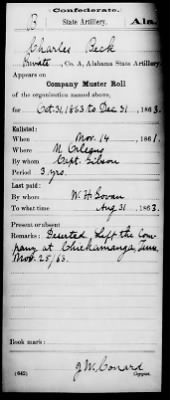 Confederate.
B State Artillery. Ala.
Charles Beck
Private, Co. A, Alabama State Artillery.
Appears on
Company Muster Roll
of the organization named above,
for Oct. 31, 1863 to Dec 31, 1863.
Enlisted:
When Nov. 14, 1861.
Where N. Orleans
By whom Capt. Gibson
Period 3 yrs.
Last paid:
By whom W. H. Govan
To what time Aug 31, 1863.
Present or absent
Remarks: Deserted, Left the Com-
pany at Chickamauga, Tenn,
Nov. 25/63.
Book mark:
J M Conard
(642) Copyist.